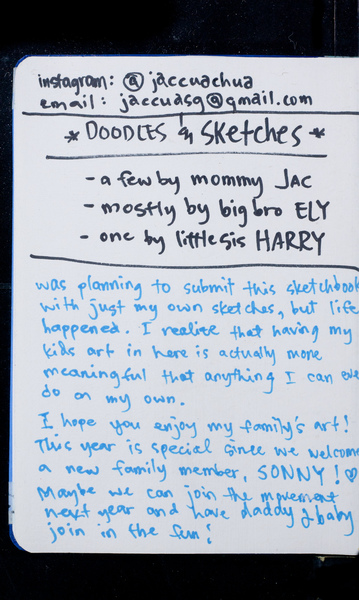 instagram: @jaccuachua
email: jaccuasg@gmail.com
* DOODLES & Sketches *
- a few by mommy JAC
- mostly by big bro ELY
- one by little sis HARRY
was planning to submit this sketchbook
with just my own sketches, but life
happened. I realize that having my
kids art in here is actually more
meaningful that anything I can eve
do on my own.
I hope you enjoy my family's art!
This year is special since we welcome
a new family member, SONNY! ♡
Maybe we can join the movement
next year and have daddy & baby
join in the fun!